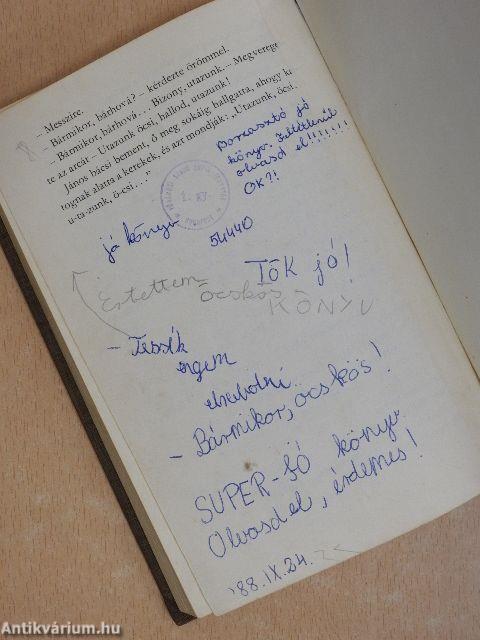 – Messzire.
– Bármikor, bárhová? – kérdezte örömmel.
– Bármikor, bárhová... Bizony, utazunk. – Megverege
te az arcát – Utazunk öcsi, hallod, utazunk!
János bácsi bement, ő meg sokáig hallgatta, ahogy ki
tognak alatta a kerekek, és azt mondják: „Utazunk, öcsi,
u-ta-zunk, ö-csi...”
Borzasztó jó
könyv. Feltétlenül
olvasd el!!!!!!!
OK?!
jó könyv
54440
TÖK jó!
Értettem
öcskös
KÖNYV
– Tessék
engem
elrabolni..
– Bármikor, öcskös!
SUPER-JÓ könyv
Olvasd el, érdemes!
'88.IX.24.
Antikvárium.hu